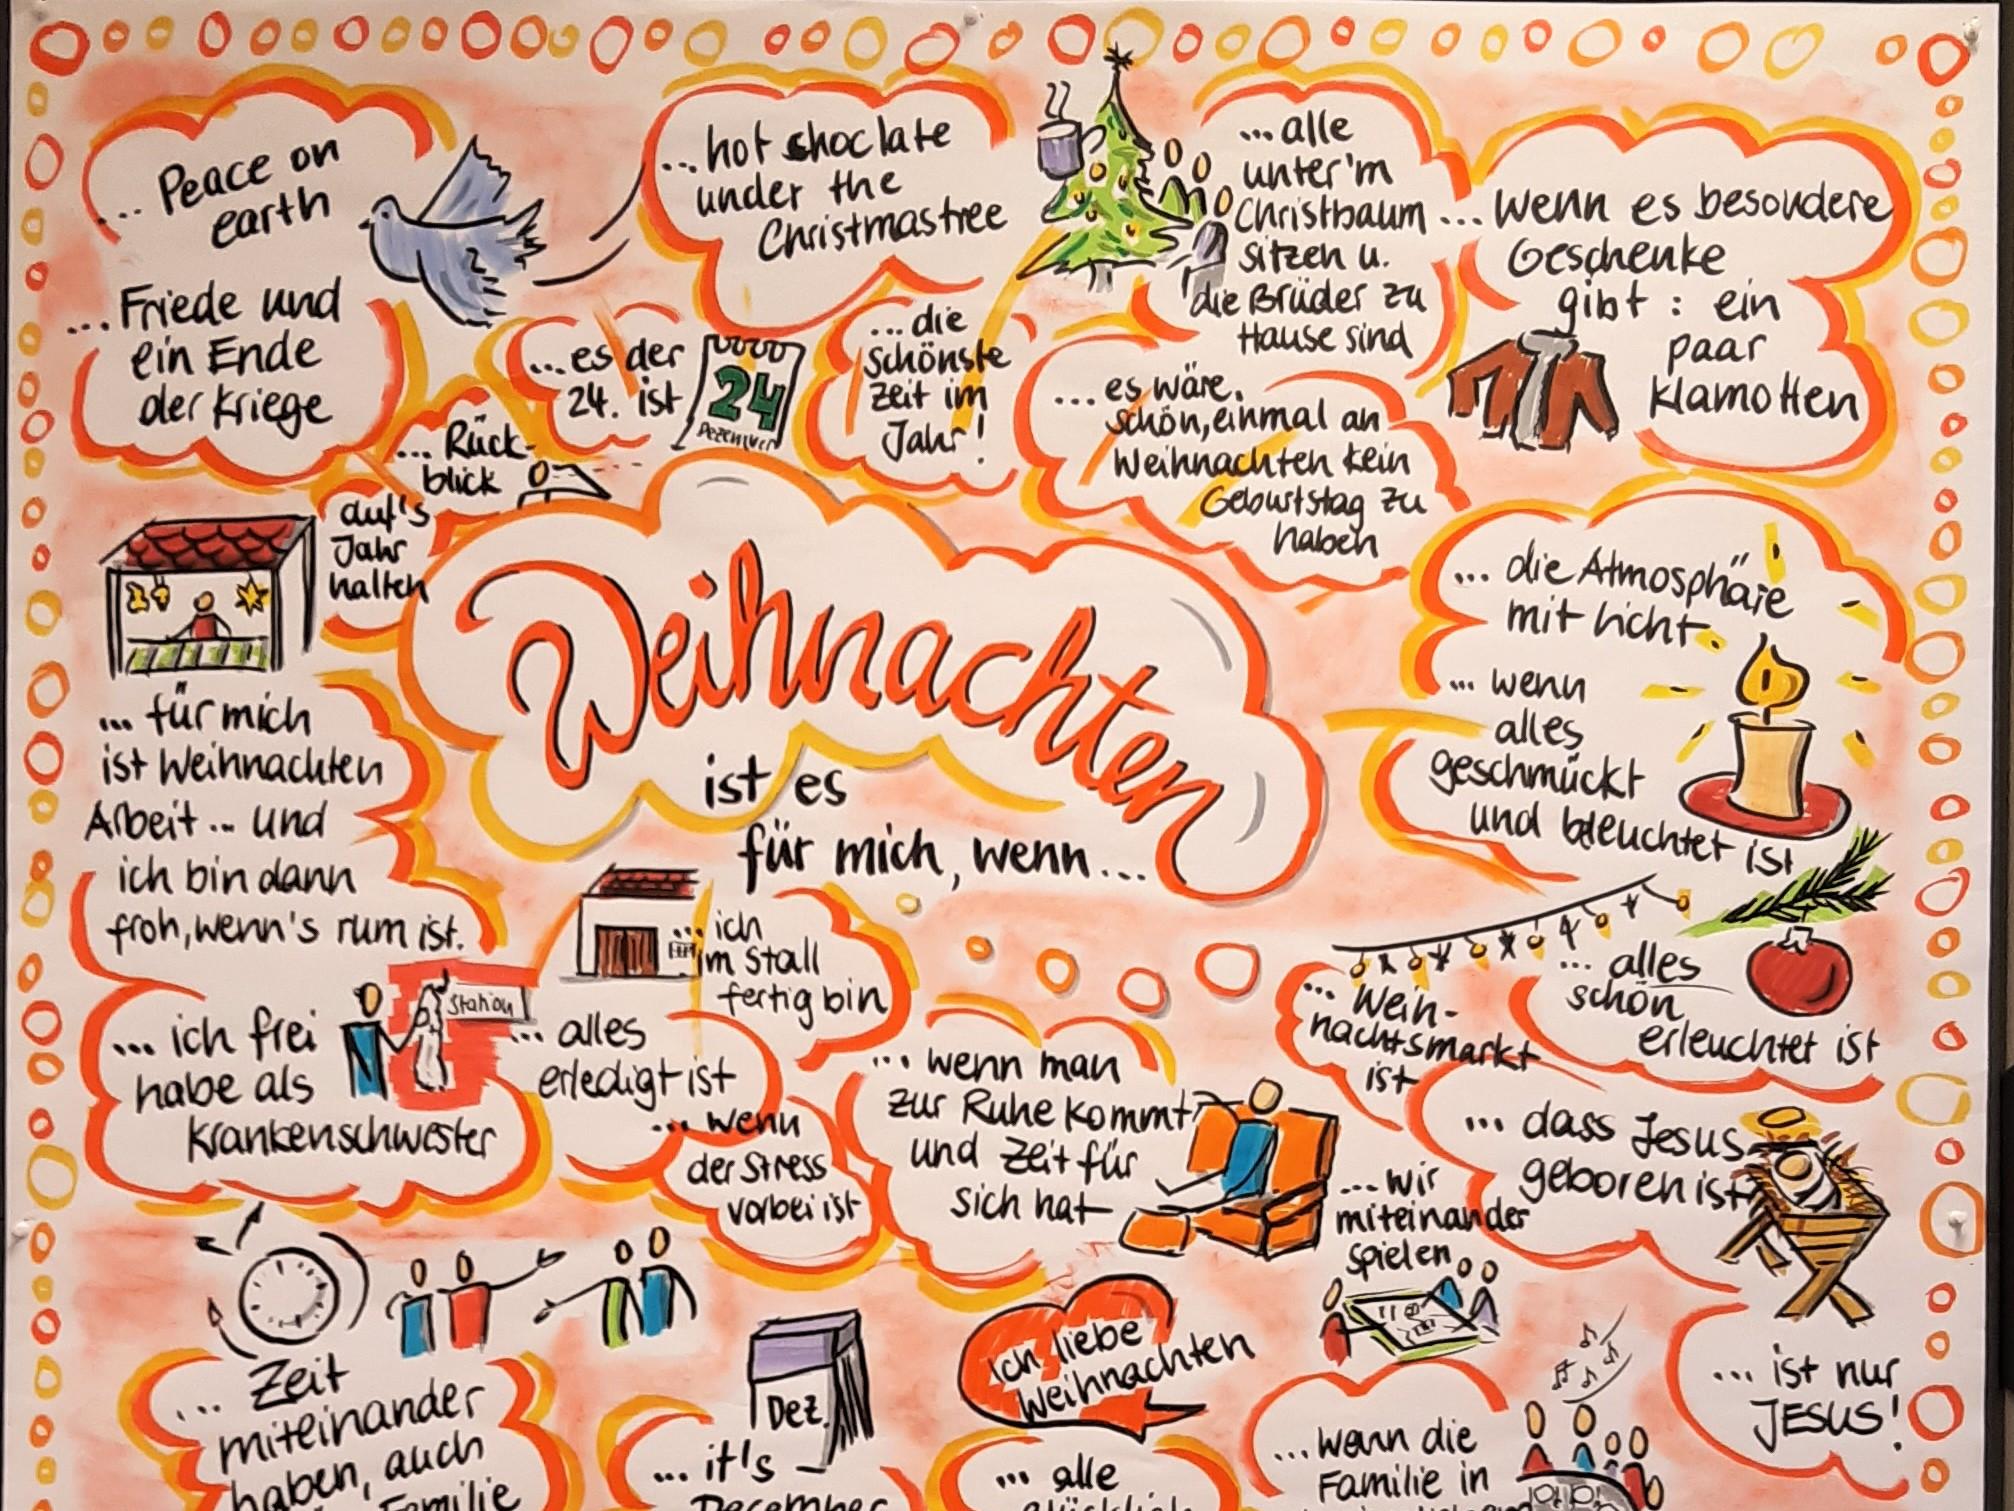 ... Peace on
earth
... Friede und
ein Ende
der Kriege
... hot shoclate
under the
Christmastree
... alle
unter'm
Christbaum
sitzen u.
die Brüder zu
Hause sind
... wenn es besondere
Geschenke
gibt : ein
paar
Klamotten
... es der
24. ist
24
Dezember
... die
schönste
Zeit im
Jahr!
... es wäre
schön, einmal an
Weihnachten kein
Geburtstag zu
haben
... Rück-
blick
auf's
Jahr
halten
24
Weihnachten
ist es
für mich, wenn...
... die Atmosphäre
mit Licht
... wenn
alles
geschmückt
und beleuchtet ist
... für mich
ist Weihnachten
Arbeit ... und
ich bin dann
froh, wenn's rum ist.
... ich
im Stall
fertig bin
... alles
schön
erleuchtet ist
... Weih-
nachtsmarkt
ist
... ich frei
habe als
Krankenschwester
Station
... alles
erledigt ist
... wenn
der Stress
vorbei ist
... wenn man
zur Ruhe kommt
und Zeit für
sich hat
... dass Jesus
geboren ist
... wir
miteinander
spielen
... Zeit
miteinander
haben, auch
Familie
Dez.
... it's
December
Ich liebe
Weihnachten
... alle
glücklich
... wenn die
Familie in
... ist nur
JESUS!